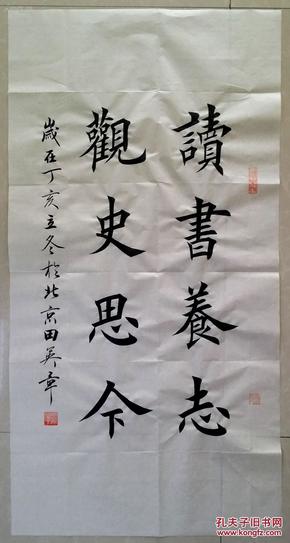 讀書養志
觀史思今
歲在丁亥立冬於北京田英章
孔夫子旧书网